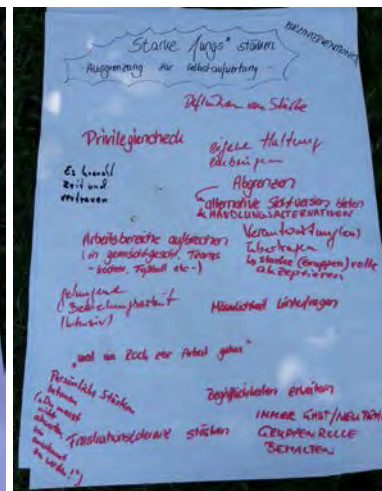 Starke Jungs* stärken
- Ausgrenzung zur Selbstaufwertung -
Definition von Stärke
Privilegiencheck
eigene Haltung
einbringen
Es braucht
Zeit und
Vertrauen
Abgrenzen
alternative Sichtweisen bieten
& HANDLUNGSALTERNATIVEN
Arbeitsbereiche aufbrechen
(in gemischtgeschl. Teams
- kochen, Fußball etc -)
Verantwortung(en)
übertragen
↳ starke (Gruppen)rolle
akzeptieren
Beziehungsarbeit
(intensiv)
Männlichkeit hinterfragen
"mal im Rock zur Arbeit gehen"
Persönliche Stärken
betonen
("Du musst
nicht
um
anerkannt
zu werden!")
Begrifflichkeiten erweitern
Frustrationstoleranz stärken
IMMER GAST/
GRUPPENROLLE
BEHALTEN